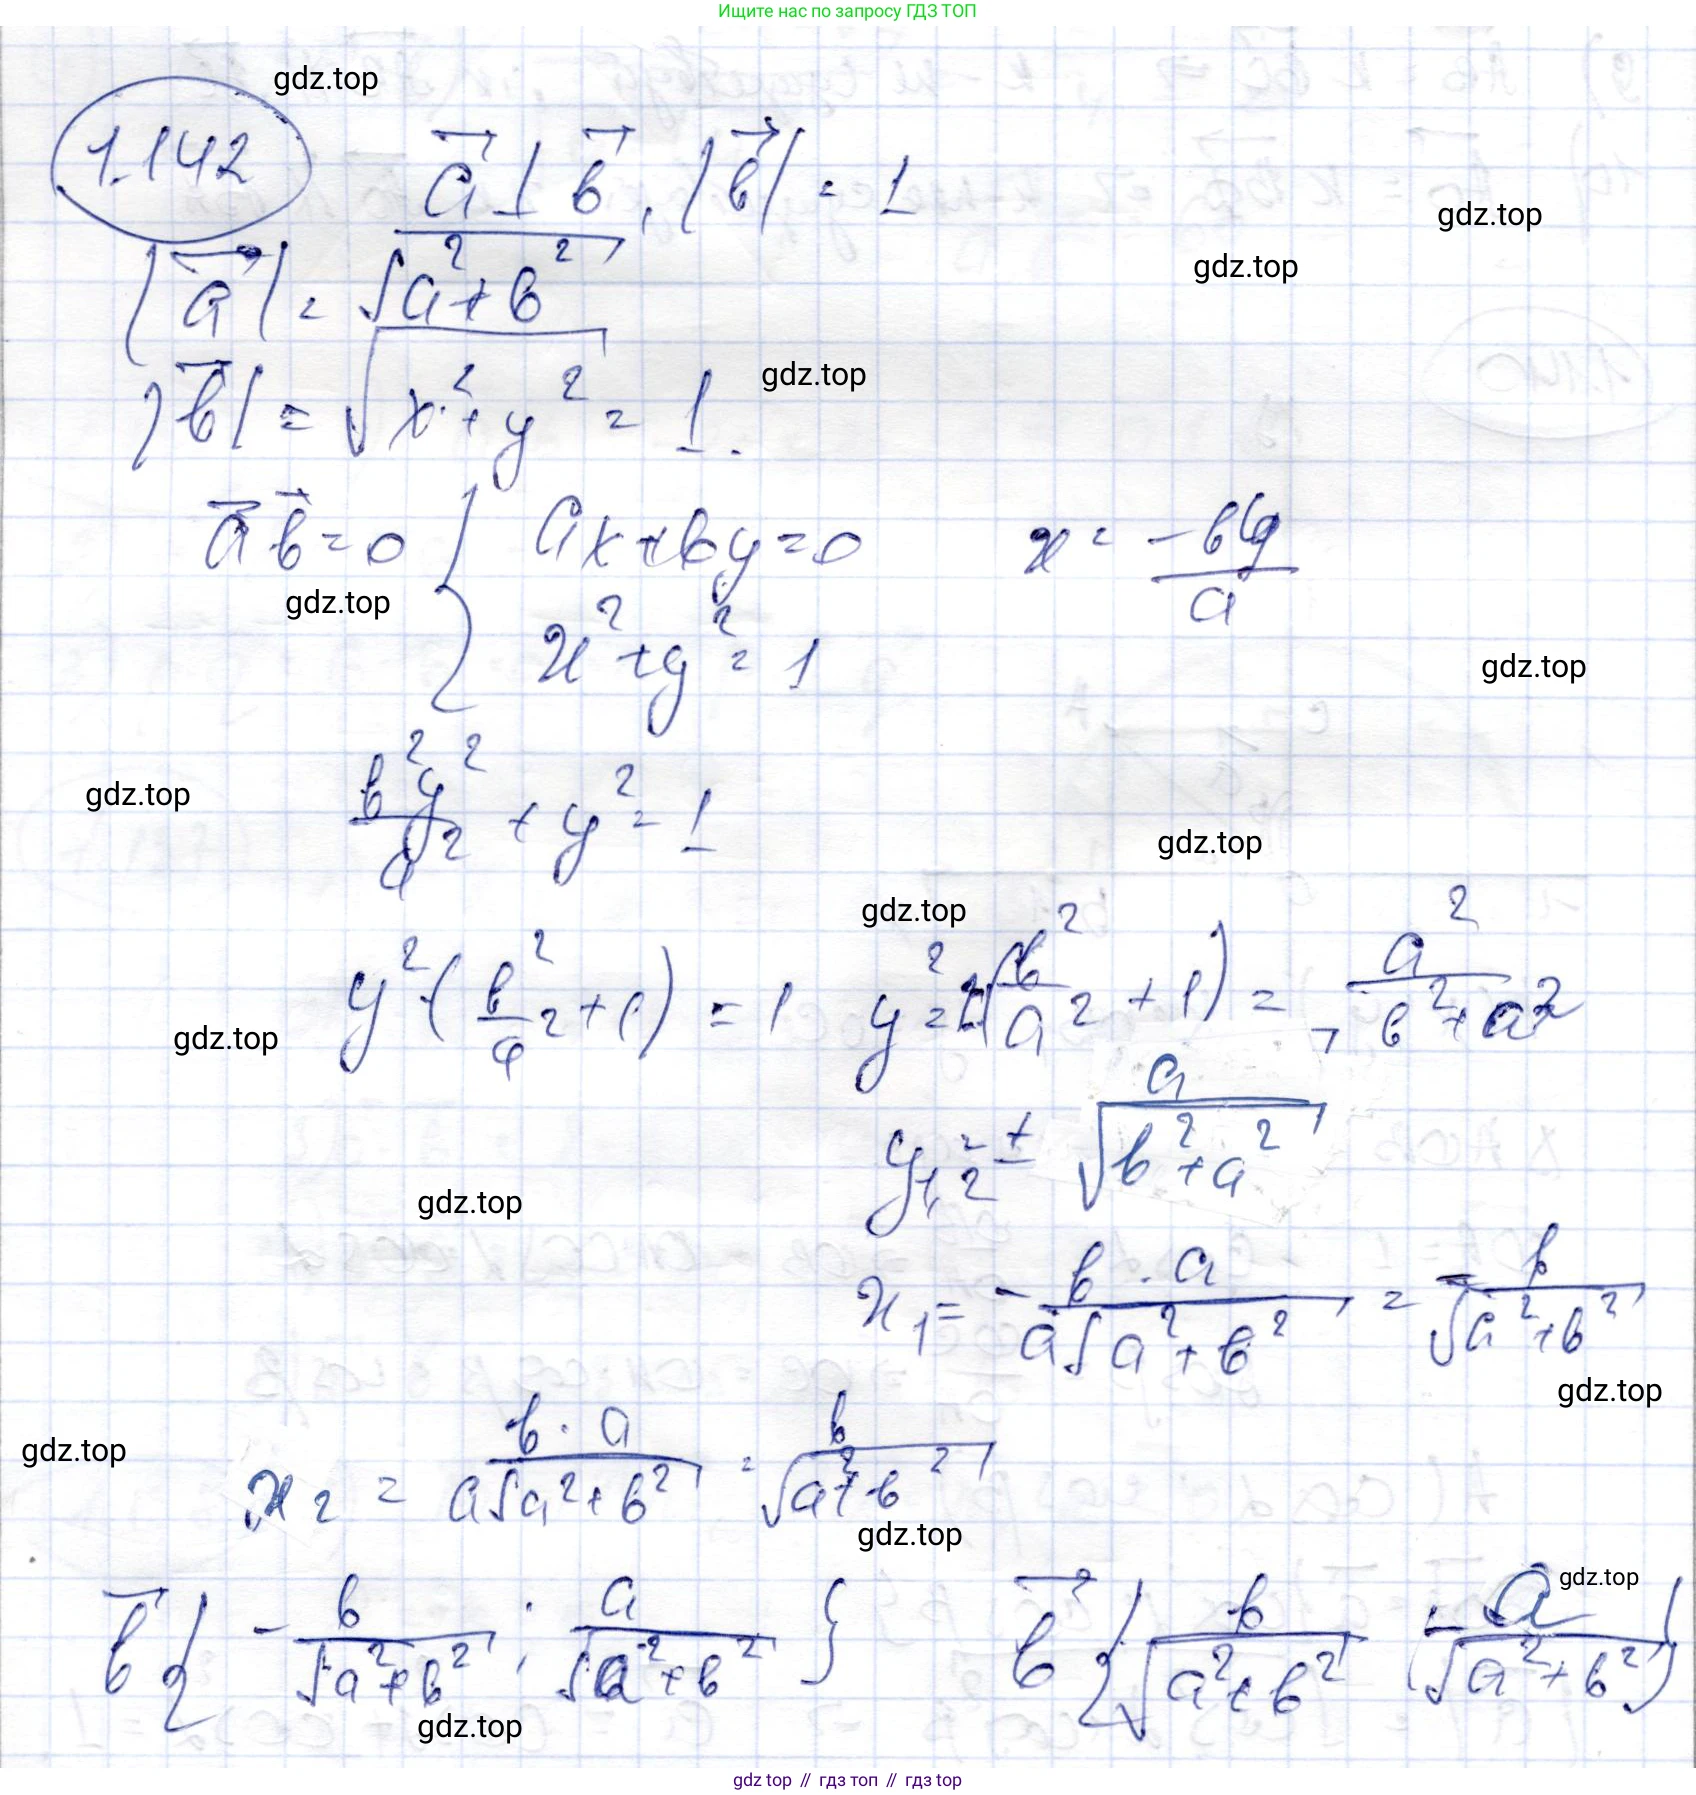 Ищите нас по запросу ГДЗ ТОП
gdz.top
1.142
a⃗ ⊥ b⃗, |b⃗| = 1
gdz.top
gdz.top
|a⃗| = √(a²+b²)
|b⃗| = √(x²+y²) = 1.
gdz.top
a⃗ b⃗ = 0 { ax+by=0 x = -by/a
gdz.top
x²+y² = 1
gdz.top
b²y²/a² + y² = 1
gdz.top
gdz.top
gdz.top
y²·(b²/a²+1) = 1 y² = 1/(b²/a²+1) = a²/(b²+a²)
gdz.top
y₁,₂ = ± a/√(b²+a²)
gdz.top
x₁ = -b·a/(a√(a²+b²)) = -b/√(a²+b²)
gdz.top
gdz.top
x₂ = b·a/(a√(a²+b²)) = b/√(a²+b²)
gdz.top
b⃗ {-b/√(a²+b²); a/√(a²+b²)} b⃗ {b/√(a²+b²); -a/√(a²+b²)}
gdz.top
gdz.top
gdz top // гдз топ // gdz top